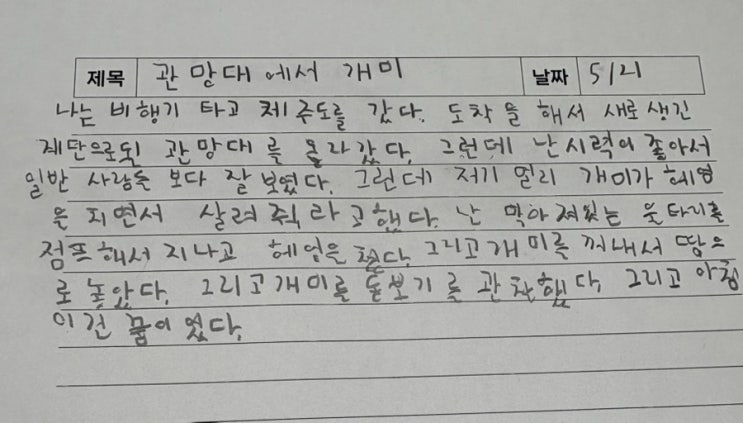 제목 관망대에서 개미 날짜 5/21
나는 비행기 타고 제주도를 갔다. 도착을 해서 새로생긴
계단으로된 관망대를 올라갔다. 그런데 난 시력이 좋아서
일반 사람들 보다 잘 보였다. 그런데 저기 멀리 개미가 헤엄
을 치면서 살려줘라고했다. 난 막아져있는 울타리를
점프해서 지나고 헤엄을 쳤다. 그리고개미를 꺼내서 땅으
로 놓았다. 그리고개미를 돋보기를 관찰했다. 그리고 아침
이건 꿈이었다.